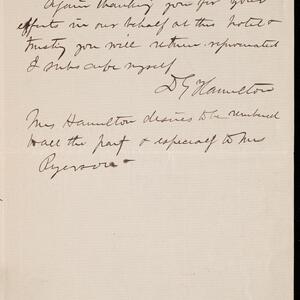 Again thanking you for your
efforts in our behalf at this hotel &
trusting you will return rejuvenated
I subscribe myself
D G Hamilton
Mrs Hamilton desires to be remembered
to all the party & especially to Mrs
Ryerson